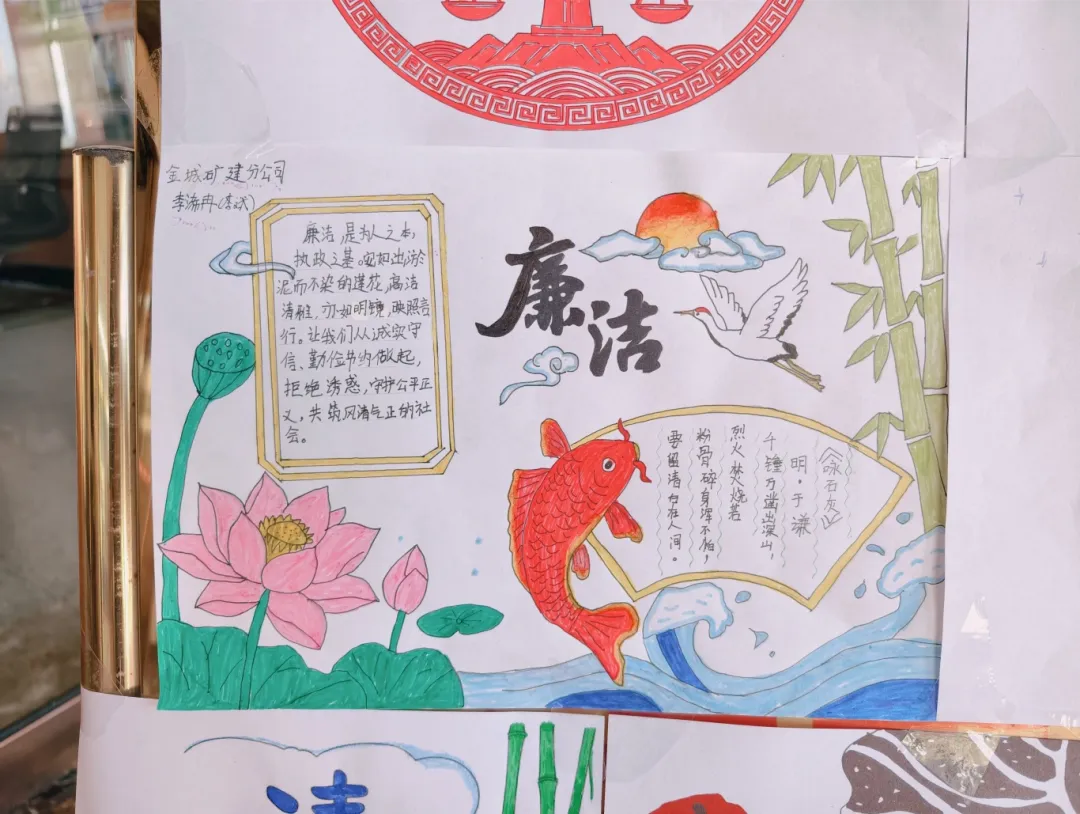 金城矿建分公司
李浠冉(李斌)
廉洁,是为人之本,
执政之基。宛如出淤
泥而不染的莲花,高洁
清雅,亦如明镜,映照言
行。让我们从诚实守
信、勤俭节约做起,
拒绝诱惑,守护公平正
义,共筑风清气正的社
会。
廉洁
《咏石灰》
明·于谦
千锤万凿出深山,
烈火焚烧若
粉骨碎身浑不怕,
要留清白在人间。
清